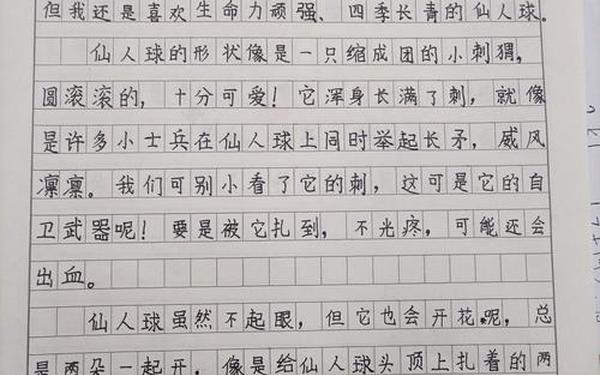 但我还是喜欢生命力顽强、四季长青的仙人球.
仙人球的形状像是一只缩成团的小刺猬,
圆滚滚的,十分可爱!它浑身长满了刺,就像
是许多小士兵在仙人球上同时举起长矛,威风
凛凛。我们可别小看了它的刺,这可是它的自
卫武器呢!要是被它扎到,不光疼,可能还会
出血。
仙人球虽然不起眼,但它也会开花呢,总
是两朵一起开,像是给仙人球头顶上扎着的两